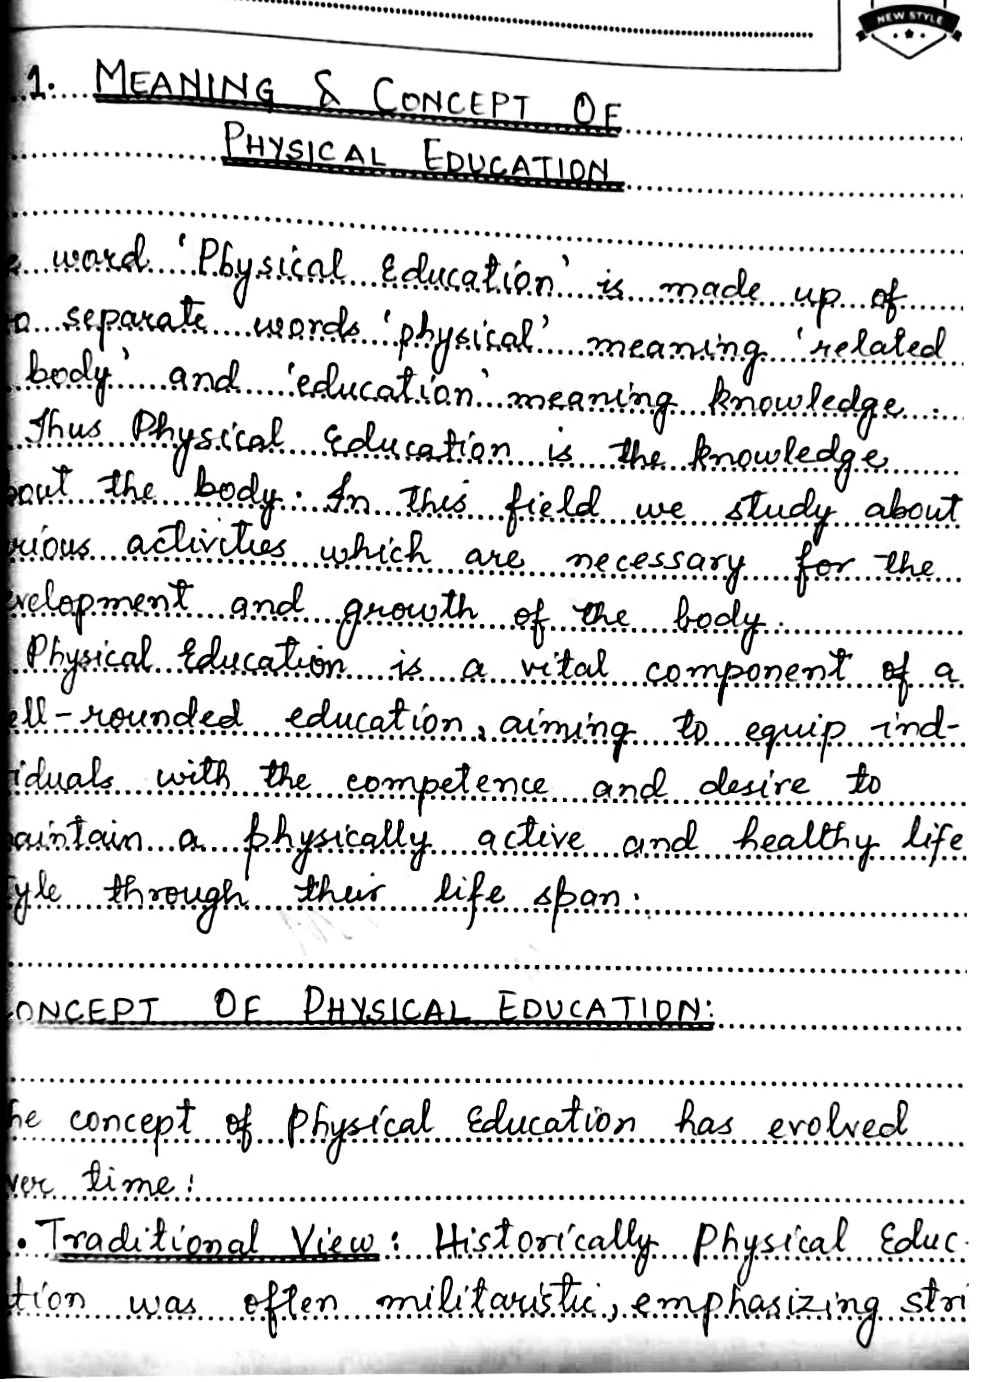 NEW STYLE
1. MEANING & CONCEPT OF
PHYSICAL EDUCATION
word 'Physical Education' is made up of
o separate words 'physical' meaning 'related
body' and 'education' meaning knowledge.
Thus Physical Education is the knowledge
out the body. In this field we study about
rious activities which are necessary for the
velopment and growth of the body.
Physical Education is a vital component of a
ell-rounded education, aiming to equip ind-
iduals with the competence and desire to
aintain a physically active and healthy life
yle through their life span.
ONCEPT OF PHYSICAL EDUCATION:
he concept of Physical Education has evolved
ver time:
• Traditional View: Historically Physical Educ-
tion was often militaristic, emphasizing stri